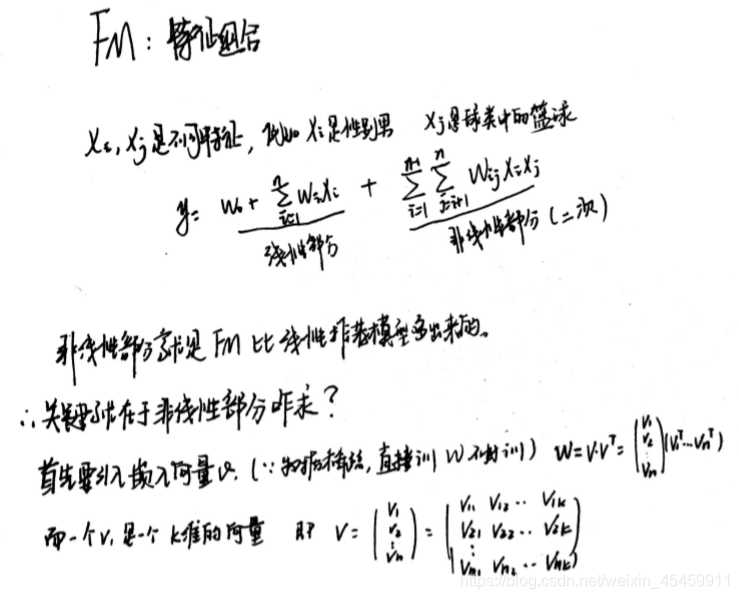 FM：特征组合
Xi, Xj是不同特征，比如Xi是性别男 Xj是球类中的篮球
y = W0 + ∑_{i=1}^{n} WiXi + ∑_{i=1}^{n-1} ∑_{j=i+1}^{n} Wij Xi Xj
线性部分 非线性部分（二次）
非线性部分就是FM比线性推荐模型多出来的。
∴关键就在于非线性部分咋求？
首先要引入嵌入向量v.（∵数据稀疏，直接训W不好训） W=V·V^T= (V1 V2 ⋮ Vn) (V1^T … Vn^T)
而一个Vi是一个k维的向量 即 V = (V1 V2 ⋮ Vn) = (V11 V12 ‥ V1k V21 V22 ‥ V2k ⋮ Vn1 Vn2 ‥ Vnk)
https://blog.csdn.net/weixin_45459911